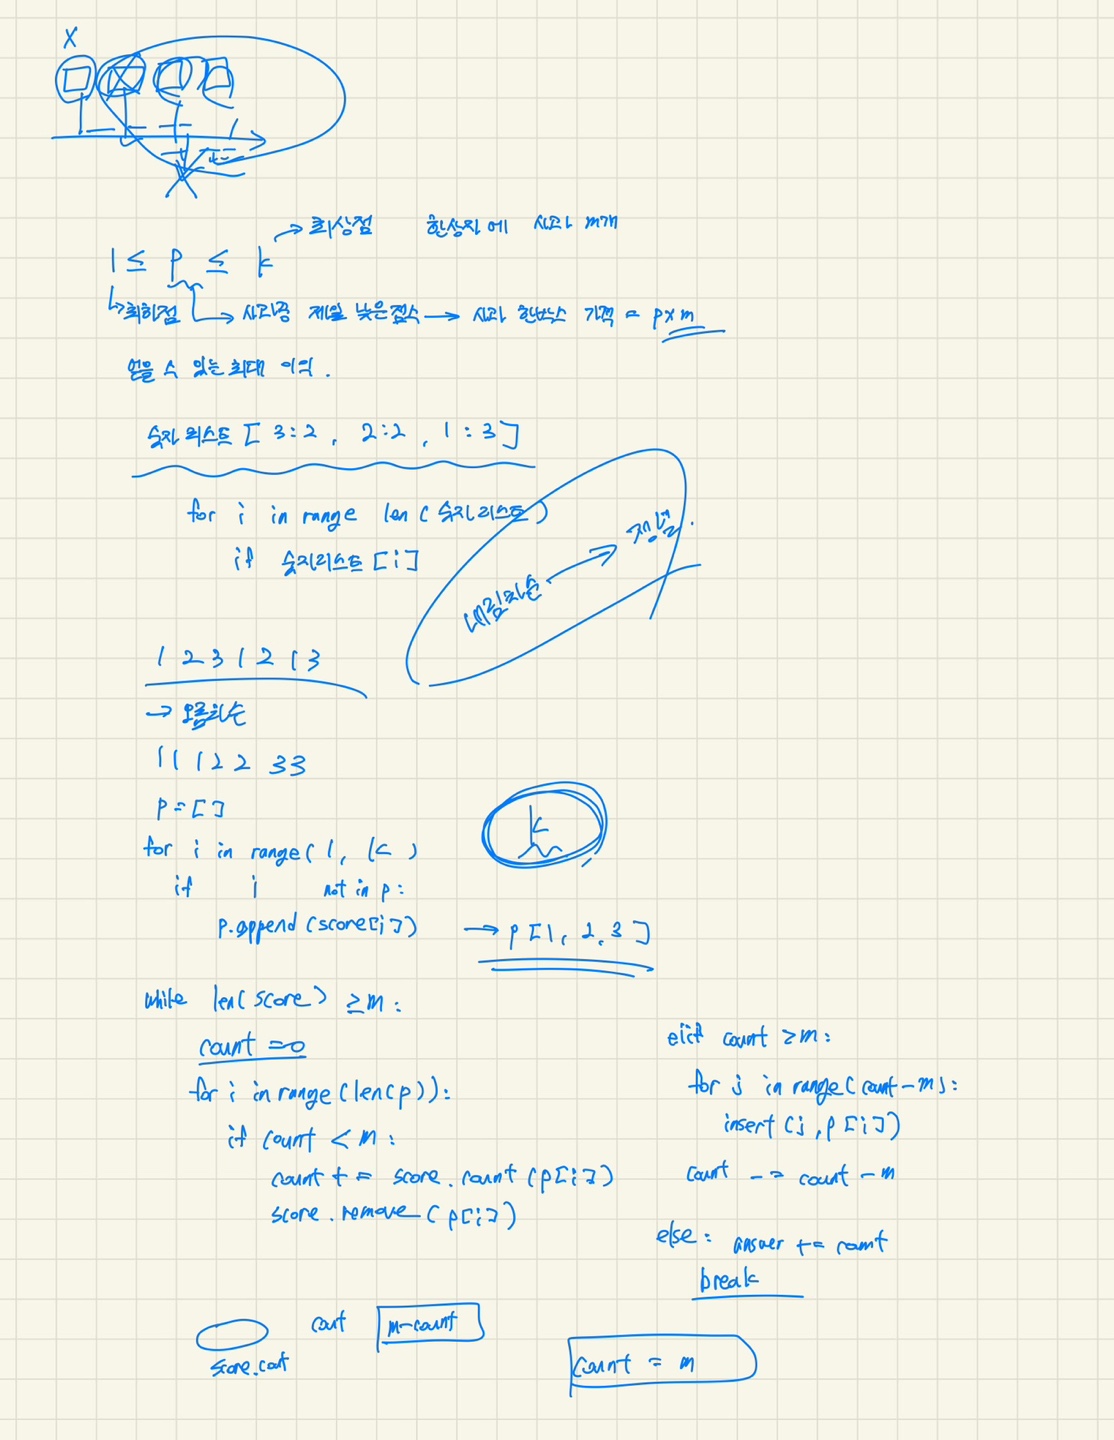 X
→ 최상점 한상자에 사과 m개
1 ≤ p ≤ k
↳최하점 → 사과중 제일 낮은점수 → 사과 한박스 가격 = p x m
얻을 수 있는 최대 이익.
숫자 리스트 [ 3:2 , 2:2 , 1:3 ]
for i in range len ( 숫자리스트 )
if 숫자리스트 [ i ]
내림차순 → 정렬.
1 2 3 1 2 1 3
→ 오름차순
1 1 1 2 2 3 3
P = [ ]
k
for i in range( 1, k )
if i not in p :
p.append (score[i])
→ p [ 1, 2, 3 ]
while len( score ) ≥ m :
count = 0
for i in range(len(p)):
if count < m :
count + = score . count ( p[i] )
score . remove ( p[i] )
elif count ≥ m :
for j in range( count - m ) :
insert ( j , p [ i ] )
count - = count - m
else : answer += count
break
cout m-count
score.cout
count = m